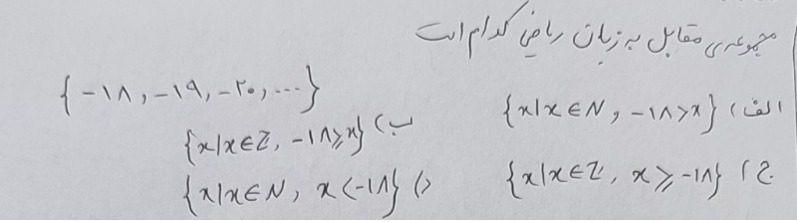 مجموعه‌ی مقابل به زبان ریاضی کدام است
{-۱۸, -۱۹, -۲۰, ...}
الف) {x|x∈N, -۱۸>x}
ب) {x|x∈Z, -۱۸⩾x}
ج) {x|x∈Z, x⩾-۱۸}
د) {x|x∈N, x<-۱۸}